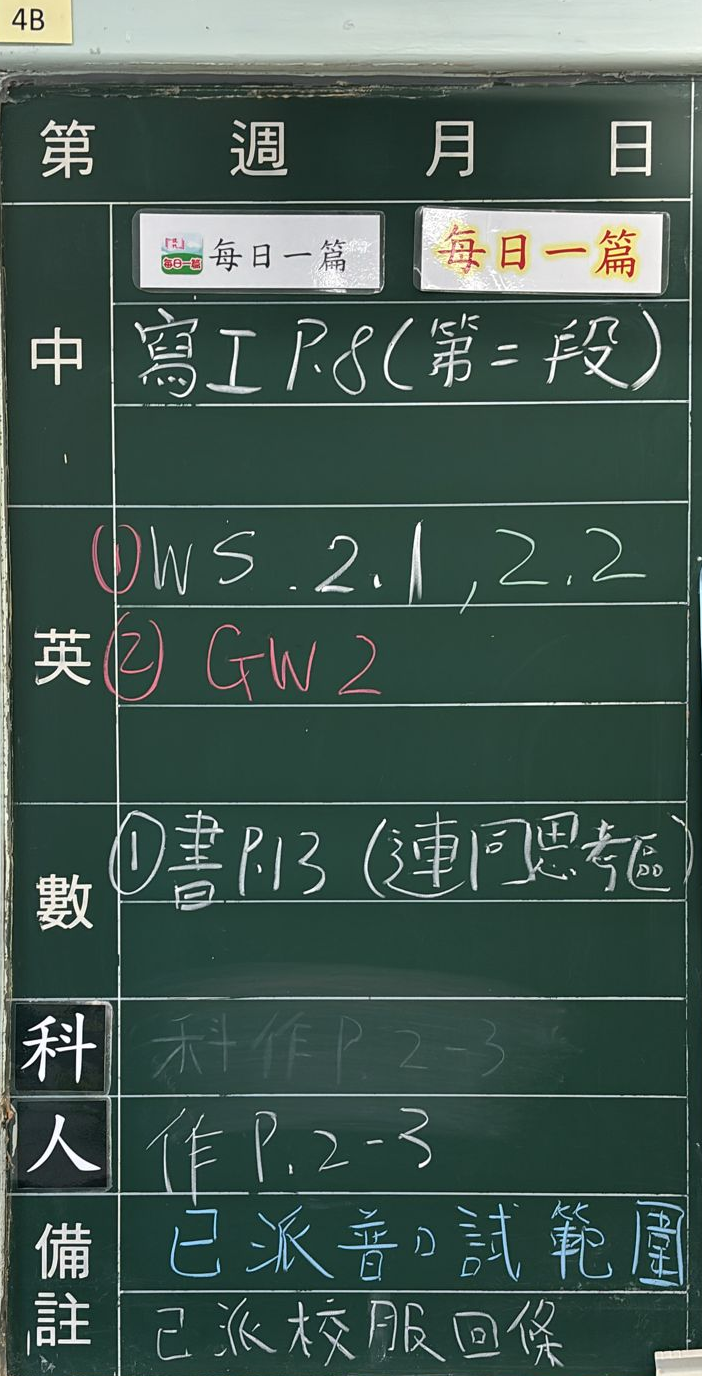 4B
第 週 月 日
每日一篇 每日一篇 每日一篇
中
寫工 P.8 (第二段)
英
① WS. 2.1, 2.2
② GW2
數
① 書P.13 (連同思考區)
科
科作P.2-3
人
作 P.2-3
備註
已派普口試範圍
已派校服回條